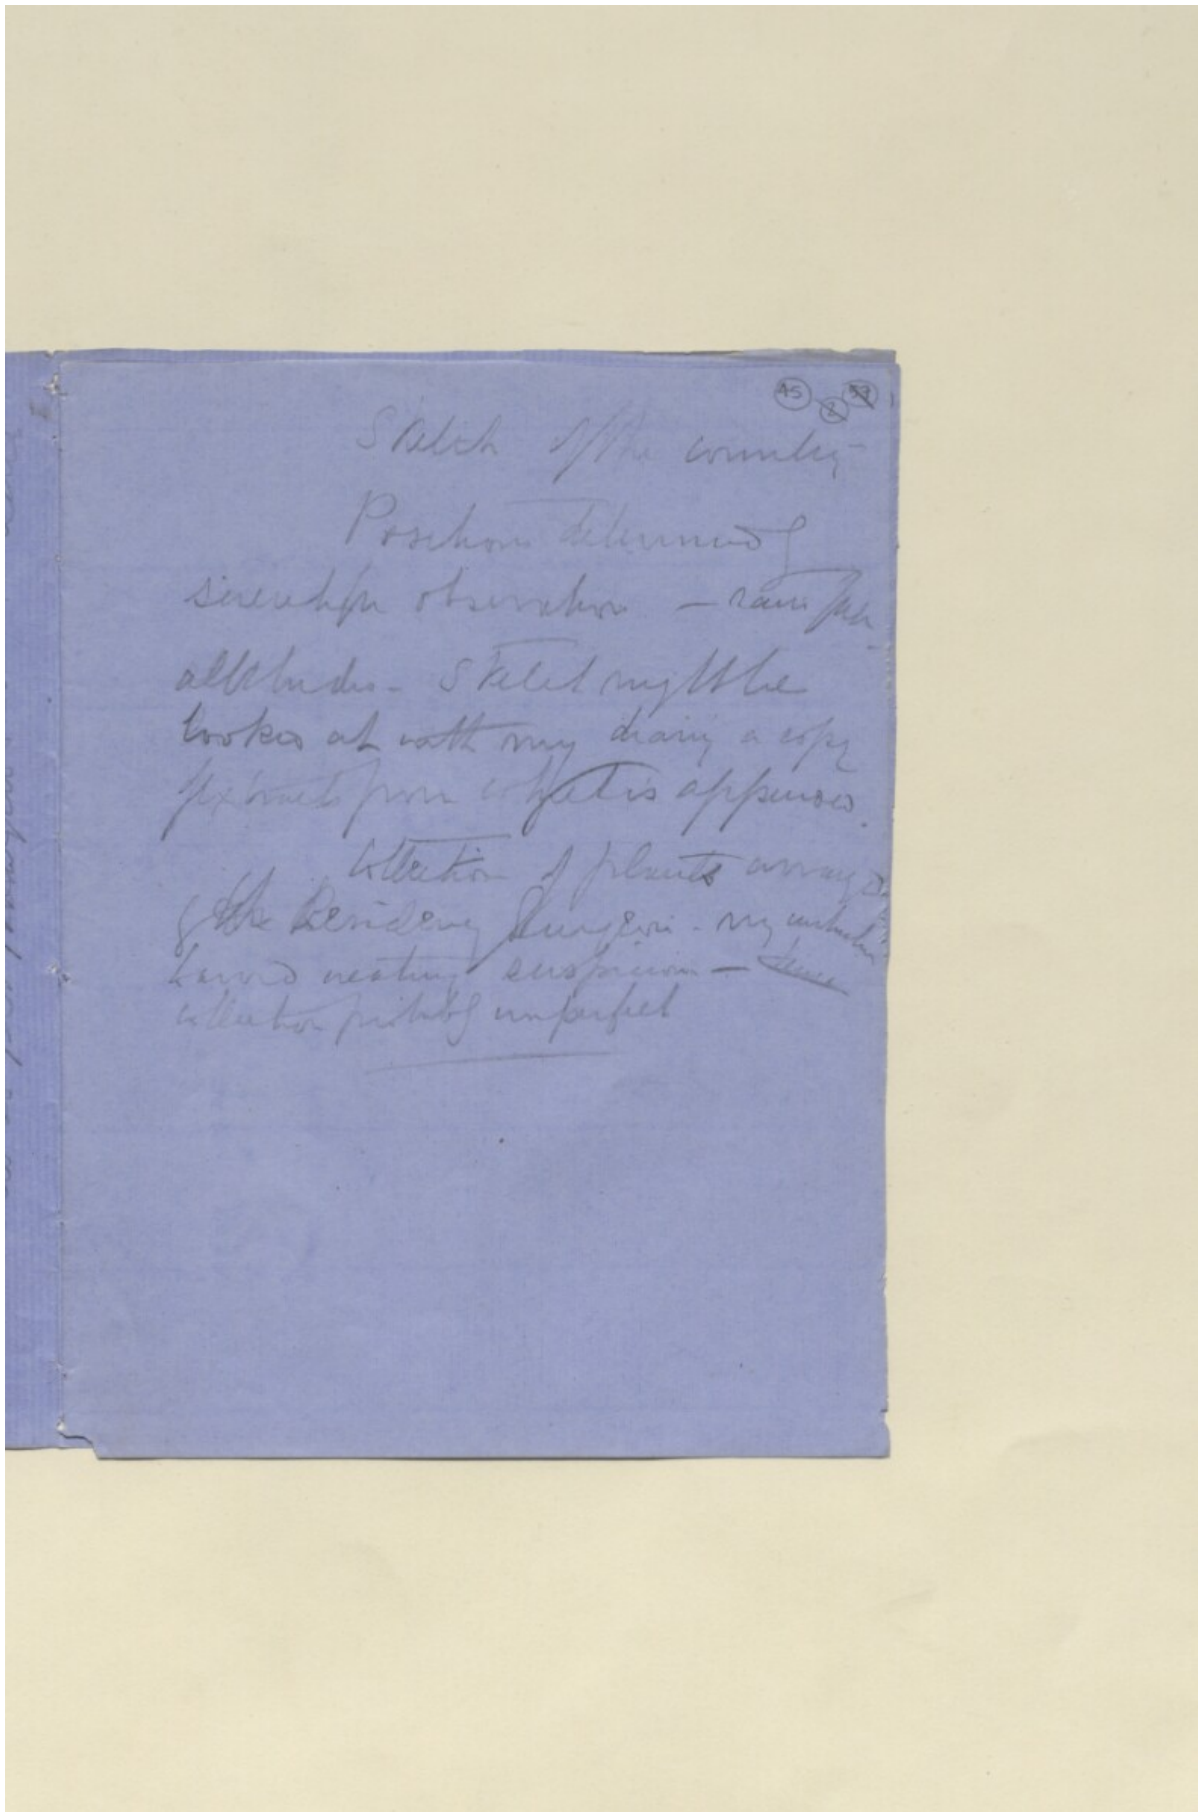 45 2 57
Sketch of the country
Positions determined by
scientific observation — same for
altitudes. Sketch might be
looked at with my diary a copy
of extracts from what is appended.
Collection of plants arranged
by the Residency Surgeon. my
creating suspicion —
collection probably imperfect